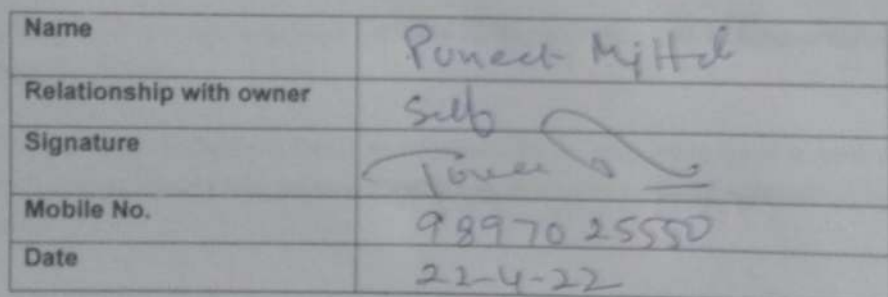 Name Puneet Mittal
Relationship with owner Self
Signature
Mobile No. 9897025550
Date 22-4-22